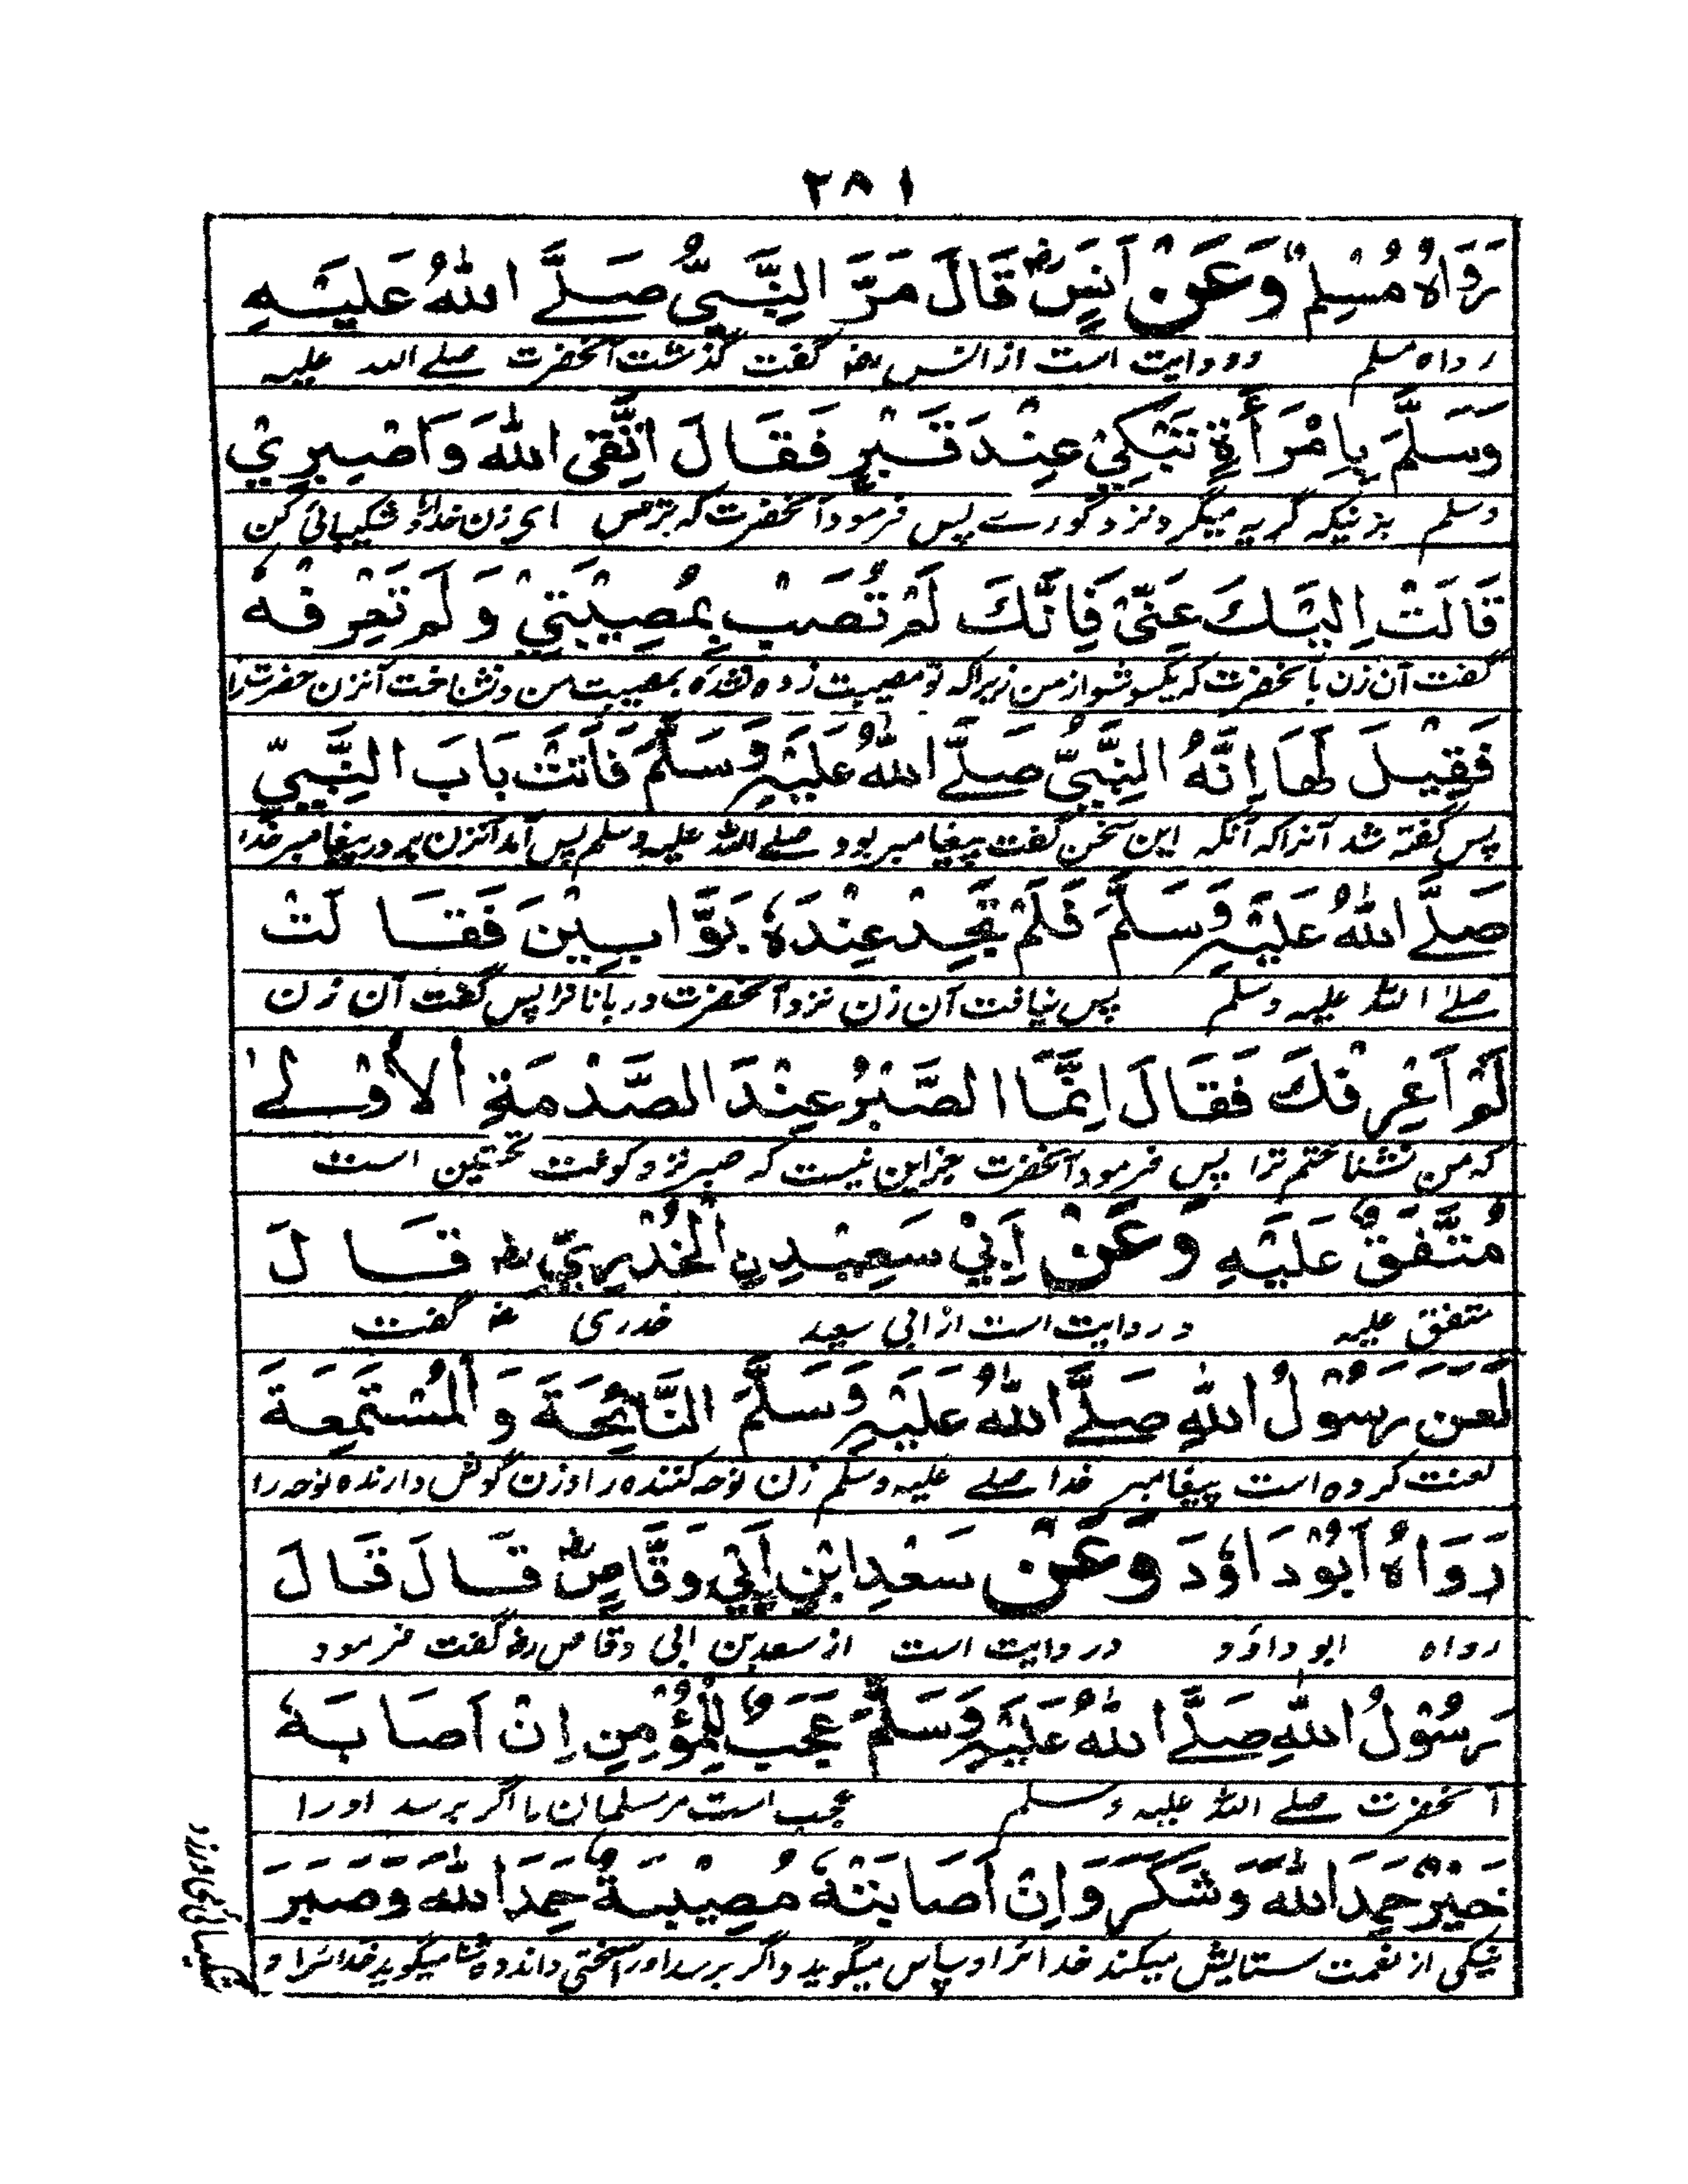 ۲۸۱
رَوَاهُ مُسْلِمٌ وَعَنْ اَنَسٍ رض قَالَ مَرَّ النَّبِيُّ صَلَّے اللهُ عَلَيْهِ
رواه مسلم و روایت است از انس رض گفت گذشت آنحضرت صلے الله علیه
وَسَلَّمَ بِامْرَأَةٍ تَبْكِيْ عِنْدَ قَبْرٍ فَقَالَ اتَّقِى اللهَ وَاصْبِرِيْ
وسلم بزنیکه گریه میکرد نزد گورے پس فرمود آنحضرت که بترس اے زن خدا را و شکیبائی کن
قَالَتْ اِلَيْكَ عَنِّىْ فَاِنَّكَ لَمْ تُصَبْ بِمُصِيْبَتِيْ وَلَمْ تَعْرِفْهُ
گفت آن زن بآنحضرت که یکسو شو از من زیراکه تو مصیبت زده نشده بمصیبت من و نشناخت آنزن حضرت را
فَقِيْلَ لَهَا اِنَّهُ النَّبِيُّ صَلَّے اللهُ عَلَيْهِ وَسَلَّمَ فَاَتَتْ بَابَ النَّبِيِّ
پس گفته شد آنرا که آنکه این سخن گفت پیغامبر بود صلے الله علیه وسلم پس آمد آنزن بر در پیغامبر خدا
صَلَّے اللهُ عَلَيْهِ وَسَلَّمَ فَلَمْ تَجِدْ عِنْدَهُ بَوَّابِيْنَ فَقَالَتْ
صلے الله علیه وسلم پس نیافت آن زن نزد آنحضرت دربانانرا پس گفت آن زن
لَمْ اَعْرِفْكَ فَقَالَ اِنَّمَا الصَّبْرُ عِنْدَ الصَّدْمَةِ الْاُوْلٰے
که من نشناختم ترا پس فرمود آنحضرت جز این نیست که صبر نزد کوفت نخستین است
مُتَّفَقٌ عَلَيْهِ وَعَنْ اَبِيْ سَعِيْدِنِ الْخُدْرِيِّ رض قَالَ
متفق علیه و روایت است از ابی سعید خدری رض گفت
لَعَنَ رَسُوْلُ اللهِ صَلَّے اللهُ عَلَيْهِ وَسَلَّمَ النَّائِحَةَ وَالْمُسْتَمِعَةَ
لعنت کرده است پیغامبر خدا صلے علیه وسلم زن نوحه کننده را و زن گوش دارنده نوحه را
رَوَاهُ اَبُوْدَاوٗدَ وَعَنْ سَعْدِ ابْنِ اَبِيْ وَقَّاصٍ رض قَالَ قَالَ
رواه ابو داوٗد و روایت است از سعد بن ابی وقاص رض گفت فرمود
رَسُوْلُ اللهِ صَلَّے اللهُ عَلَيْهِ وَسَلَّمَ عَجَبٌ لِلْمُؤْمِنِ اِنْ اَصَابَهٗ
آنحضرت صلے الله علیه وسلم عجب است مر مسلمان را اگر برسد او را
خَيْرٌ حَمِدَ اللهَ وَشَكَرَ وَاِنْ اَصَابَتْهُ مُصِيْبَةٌ حَمِدَ اللهَ وَصَبَرَ
نیکی از نعمت ستایش میکند خدا را و سپاس میگوید و اگر برسد او را سختی و اندوه ثنا میگوید خدا را و